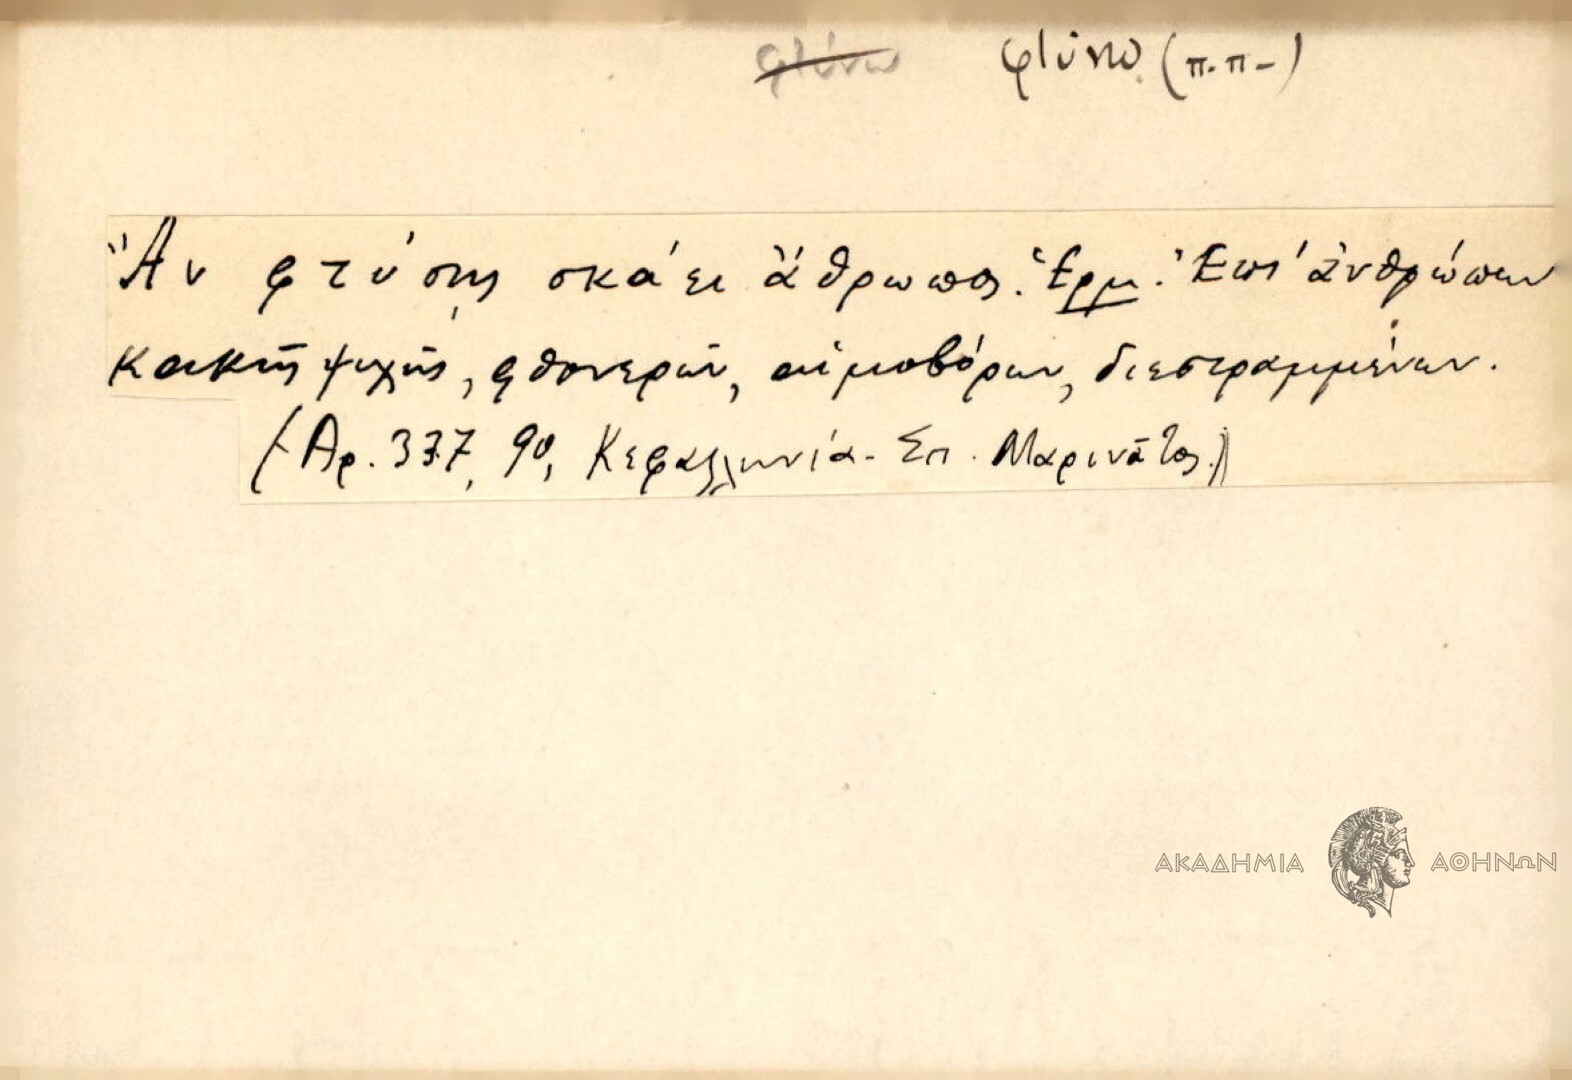 φτύνω φτύνω (π.π-)
Ἂν φτύσῃς σκάει ἄθρωπος. Ἑρμ. Ἐπὶ ἀνθρώπων
κακῆς ψυχῆς, φθονερῶν, αἱμοβόρων, διεστραμμένων.
(Ἀρ. 337, 90, Κεφαλληνία - Σπ. Μαρινᾶτος.)
ΑΚΑΔΗΜΙΑ ΑΘΗΝΩΝ